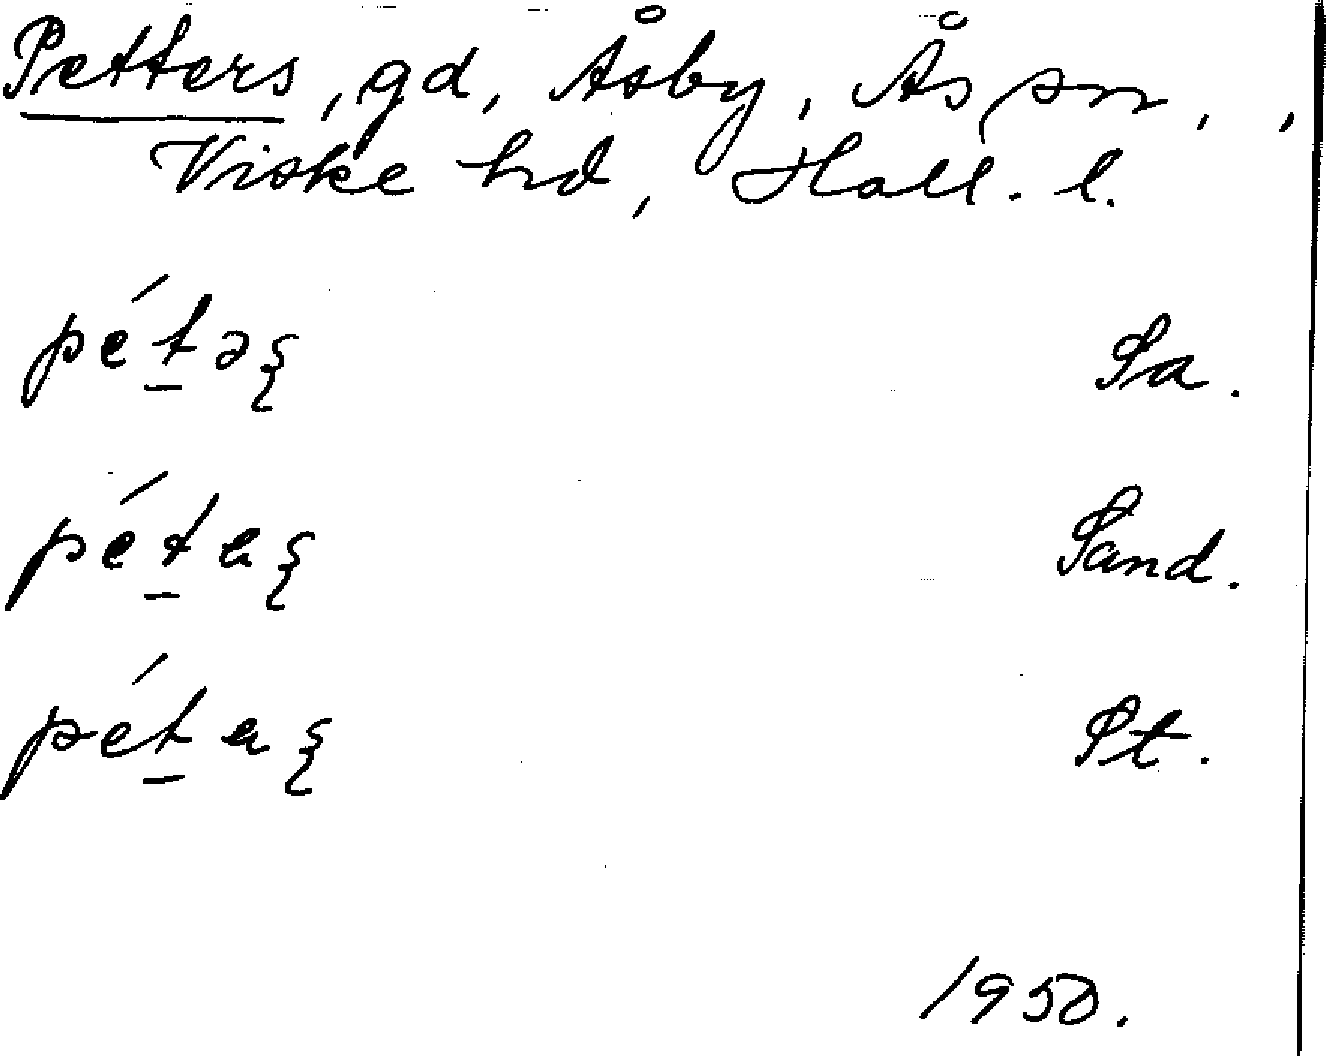 Petters, gd, Åsby, Ås sn, ,
Viske hd, Hall. l.
pét̲əʂ Sa.
pét̲aʂ Sand.
pét̲aʂ St.
1950.